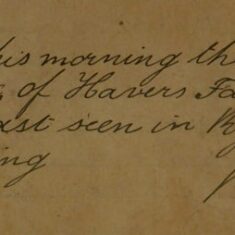 his morning th
of Havers Fa
ast seen in
ing